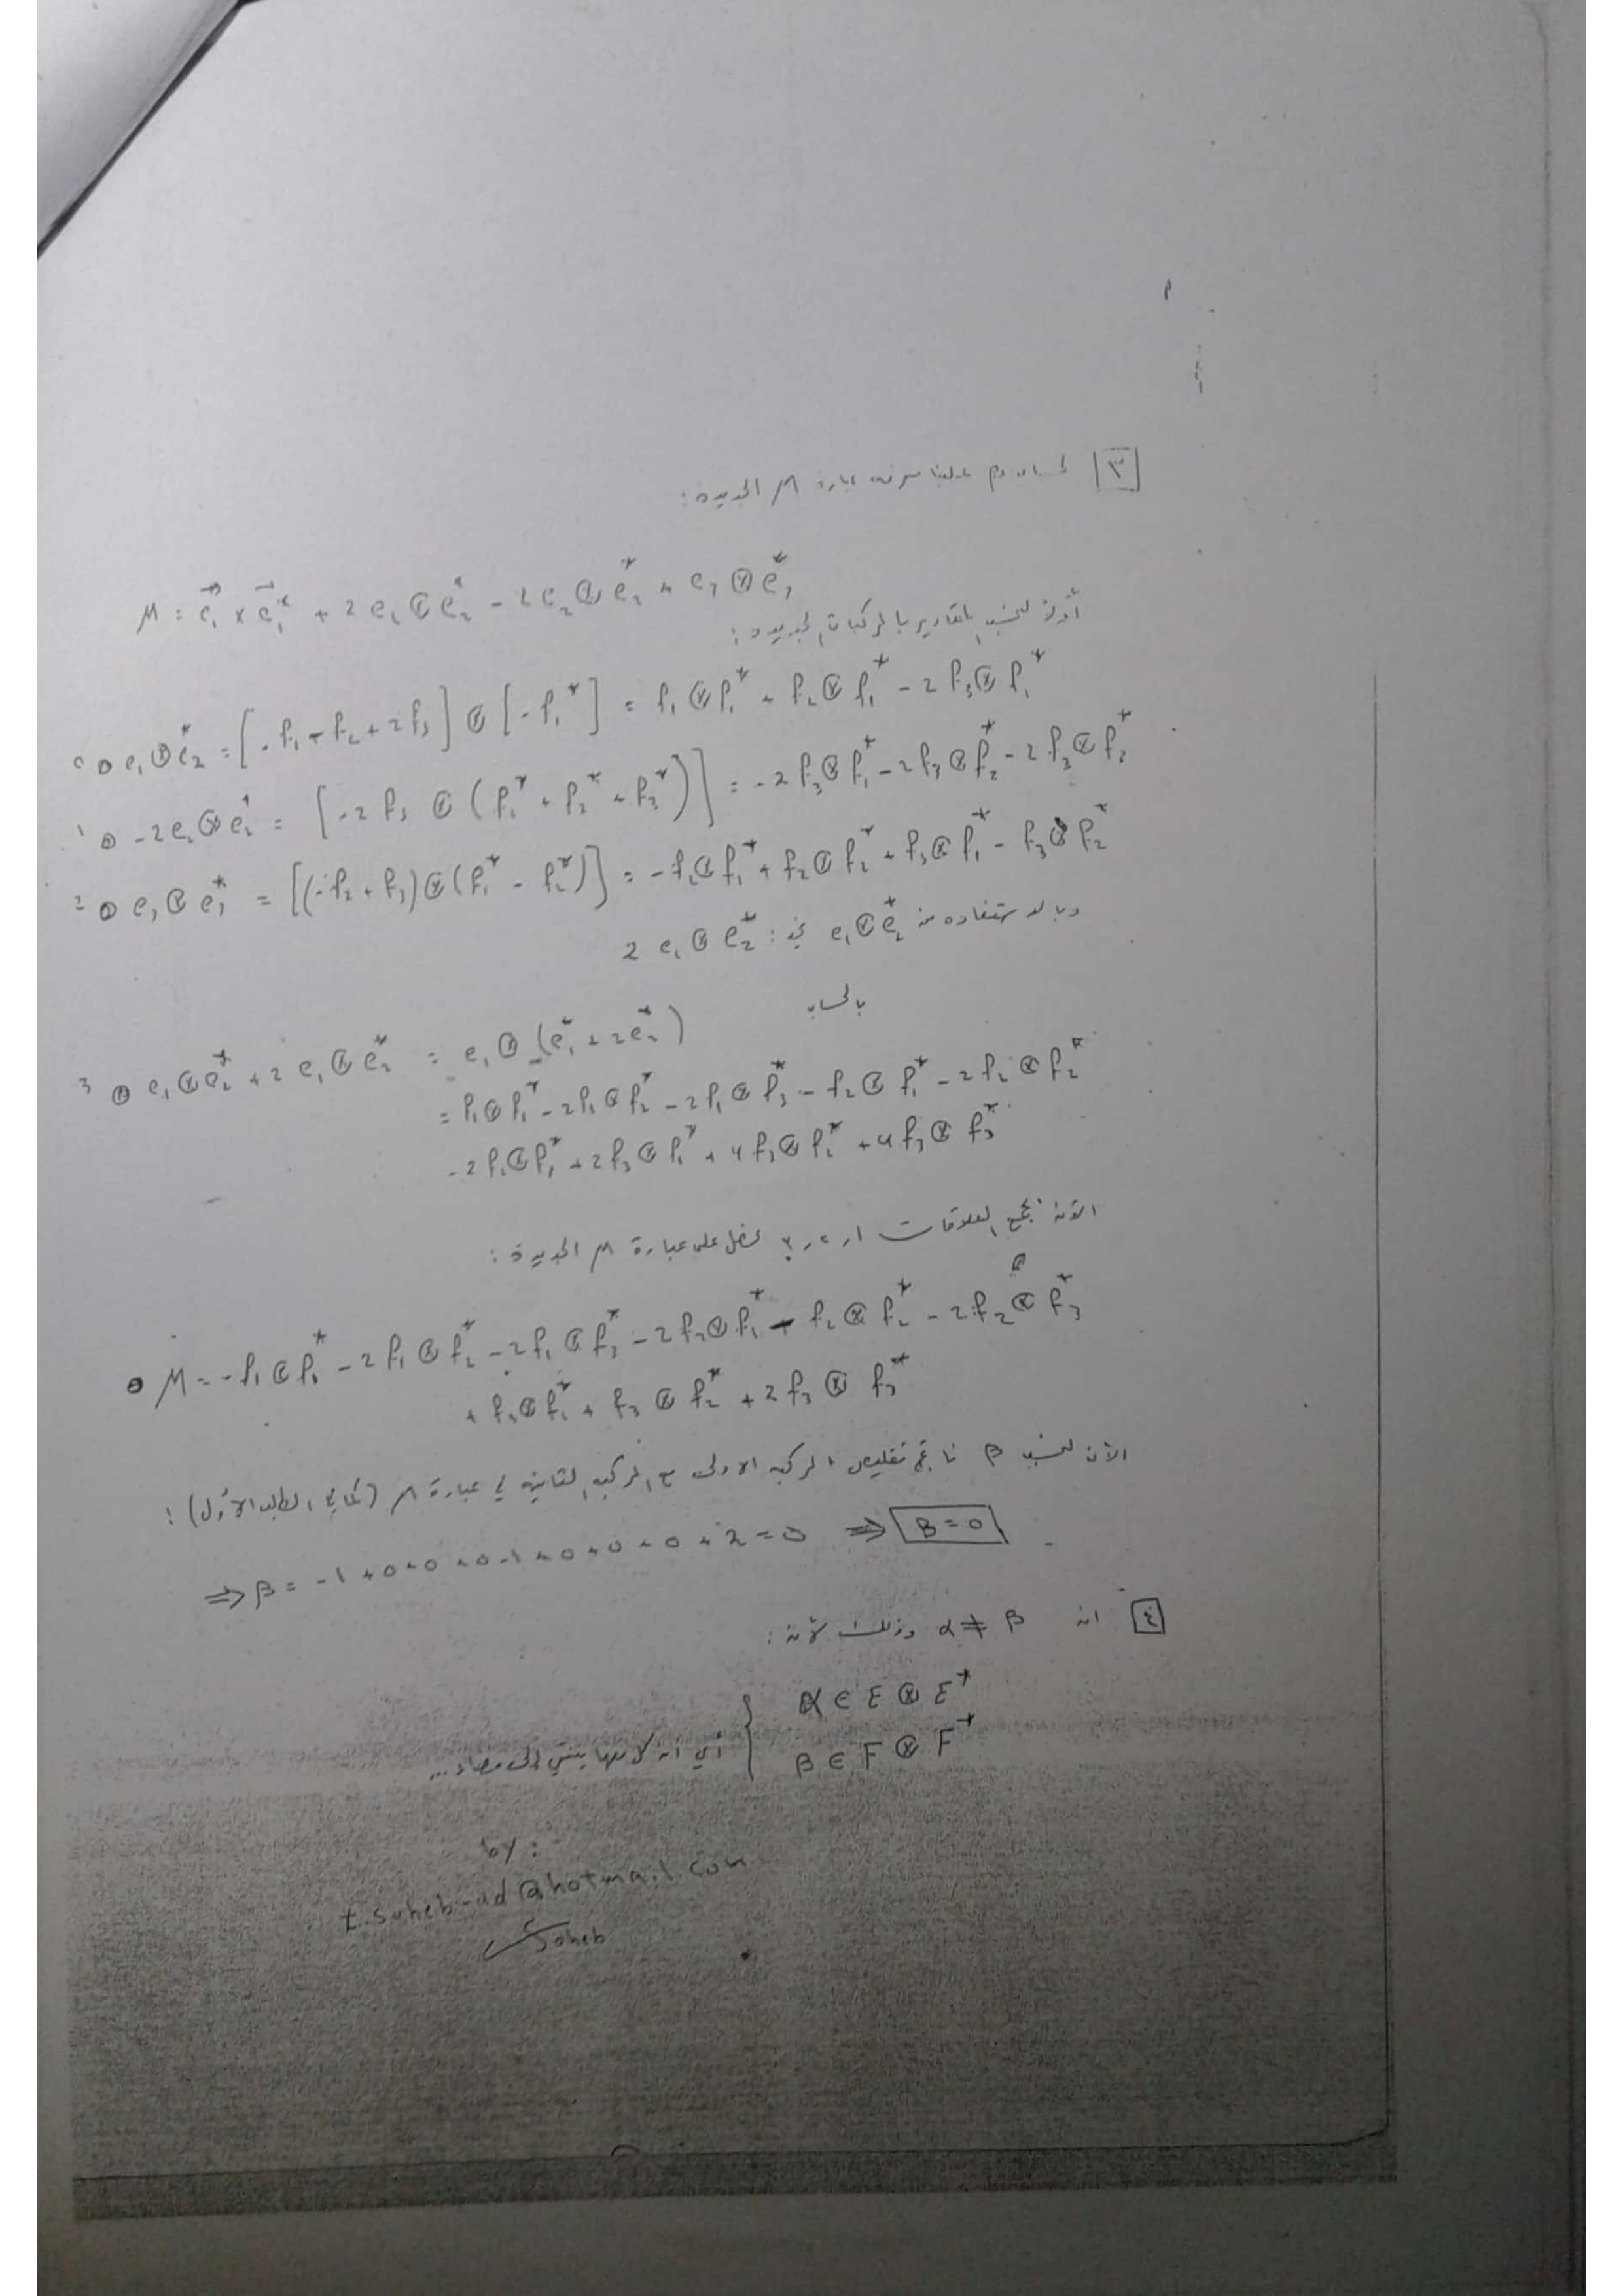 ٣ عبارة M الجديدة :
M = e₁ × e₁* + 2 e₁ ⊗ e₂* - 2 e₂ ⊗ e₂* + e₃ ⊗ e₃*
أولاً لنحسب المقادير بالمركبات الجديدة :
e₁ ⊗ e₂* = [- f₁ + f₂ + 2 f₃] ⊗ [- f₁*] = f₁ ⊗ f₁* + f₂ ⊗ f₁* - 2 f₃ ⊗ f₁*
- 2 e₂ ⊗ e₂* = [- 2 f₃ ⊗ (f₁* + f₂* + f₃*)] = - 2 f₃ ⊗ f₁* - 2 f₃ ⊗ f₂* - 2 f₃ ⊗ f₃*
2 e₃ ⊗ e₃* = [(- f₂ + f₃) ⊗ (f₁* - f₂*)] = - f₂ ⊗ f₁* + f₂ ⊗ f₂* + f₃ ⊗ f₁* - f₃ ⊗ f₂*
وبالاستفادة من e₁ ⊗ e₂* : 2 e₁ ⊗ e₂*
بالحساب
3 e₁ ⊗ e₂* + 2 e₁ ⊗ e₂* = e₁ ⊗ (e₁* + 2 e₂*)
= f₁ ⊗ f₁* - 2 f₁ ⊗ f₂* - 2 f₁ ⊗ f₃* - f₂ ⊗ f₁* - 2 f₂ ⊗ f₂*
- 2 f₂ ⊗ f₁* + 2 f₃ ⊗ f₁* + 4 f₃ ⊗ f₂* + 4 f₃ ⊗ f₃*
الآن نجمع العلاقات ١ ، ٢ ، ٣ نحصل على عبارة M الجديدة :
M = - f₁ ⊗ f₁* - 2 f₁ ⊗ f₂* - 2 f₁ ⊗ f₃* - 2 f₂ ⊗ f₁* - f₂ ⊗ f₂* - 2 f₂ ⊗ f₃*
+ f₃ ⊗ f₁* + f₃ ⊗ f₂* + 2 f₃ ⊗ f₃*
الآن لنحسب β ناتج تقليص المركبة الأولى مع المركبة الثانية في عبارة M (كما في الطلب الأول) :
⇒ β = - 1 + 0 + 0 + 0 - 1 + 0 + 0 + 0 + 2 = 0 ⇒ β = 0
٤ ان α ≠ β وذلك لأن :
α ∈ E ⊗ E*
β ∈ F ⊗ F*
أي أن كلاهما ينتمي إلى فضاء ...
by :
t.soheb-ad@hotmail.com
Soheb